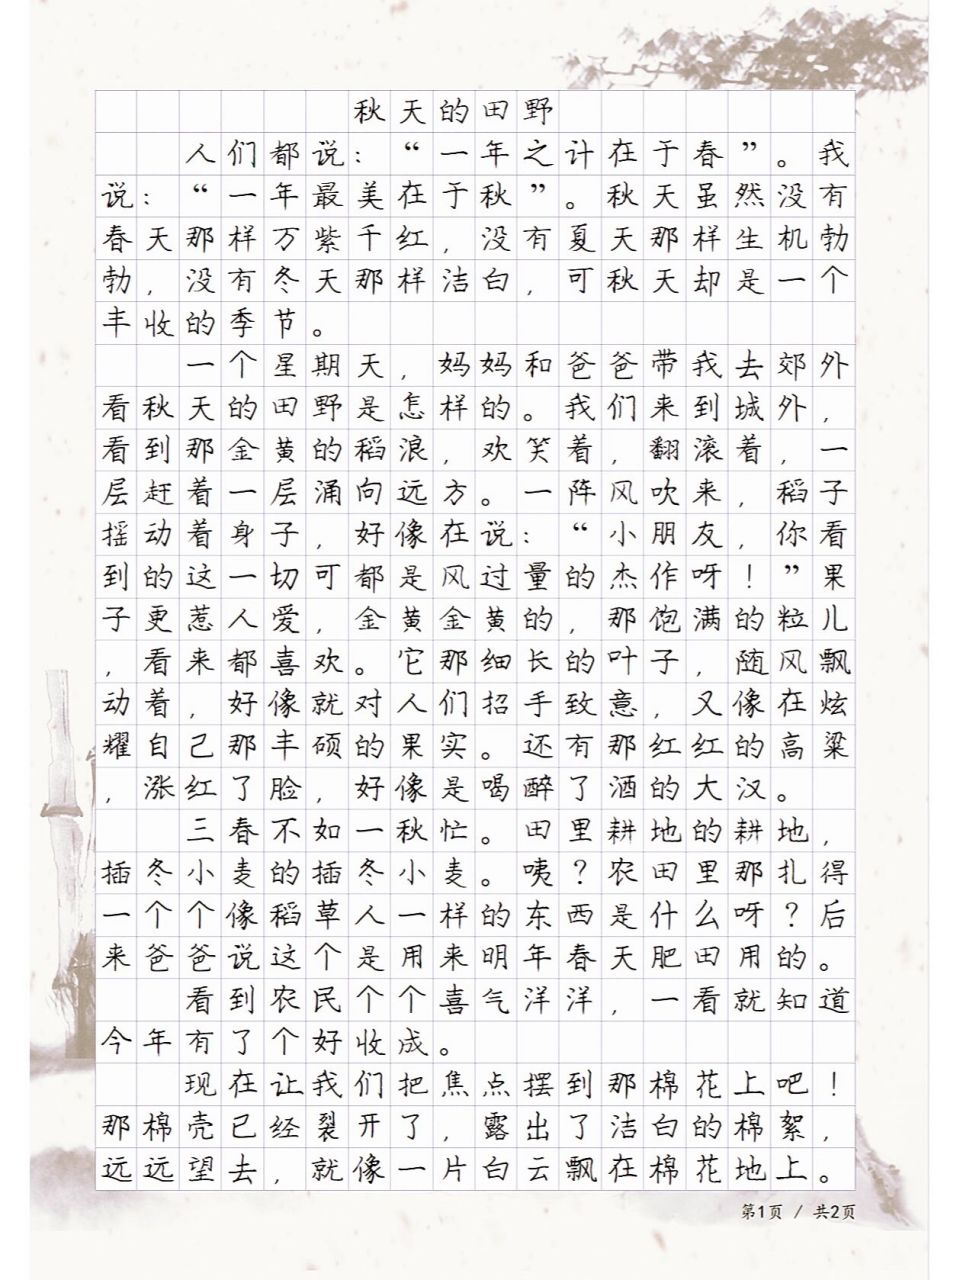 秋天的田野
人们都说：“一年之计在于春”。我
说：“一年最美在于秋”。秋天虽然没有
春天那样万紫千红，没有夏天那样生机勃
勃，没有冬天那样洁白，可秋天却是一个
丰收的季节。
一个星期天，妈妈和爸爸带我去郊外
看秋天的田野是怎样的。我们来到城外，
看到那金黄的稻浪，欢笑着，翻滚着，一
层赶着一层涌向远方。一阵风吹来，稻子
摇动着身子，好像在说：“小朋友，你看
到的这一切可都是风过量的杰作呀！”果
子更惹人爱，金黄金黄的，那饱满的粒儿
，看来都喜欢。它那细长的叶子，随风飘
动着，好像就对人们招手致意，又像在炫
耀自己那丰硕的果实。还有那红红的高粱
，涨红了脸，好像是喝醉了酒的大汉。
三春不如一秋忙。田里耕地的耕地，
插冬小麦的插冬小麦。咦？农田里那扎得
一个个像稻草人一样的东西是什么呀？后
来爸爸说这个是用来明年春天肥田用的。
看到农民个个喜气洋洋，一看就知道
今年有了个好收成。
现在让我们把焦点摆到那棉花上吧！
那棉壳已经裂开了，露出了洁白的棉絮，
远远望去，就像一片白云飘在棉花地上。
第1页 / 共2页